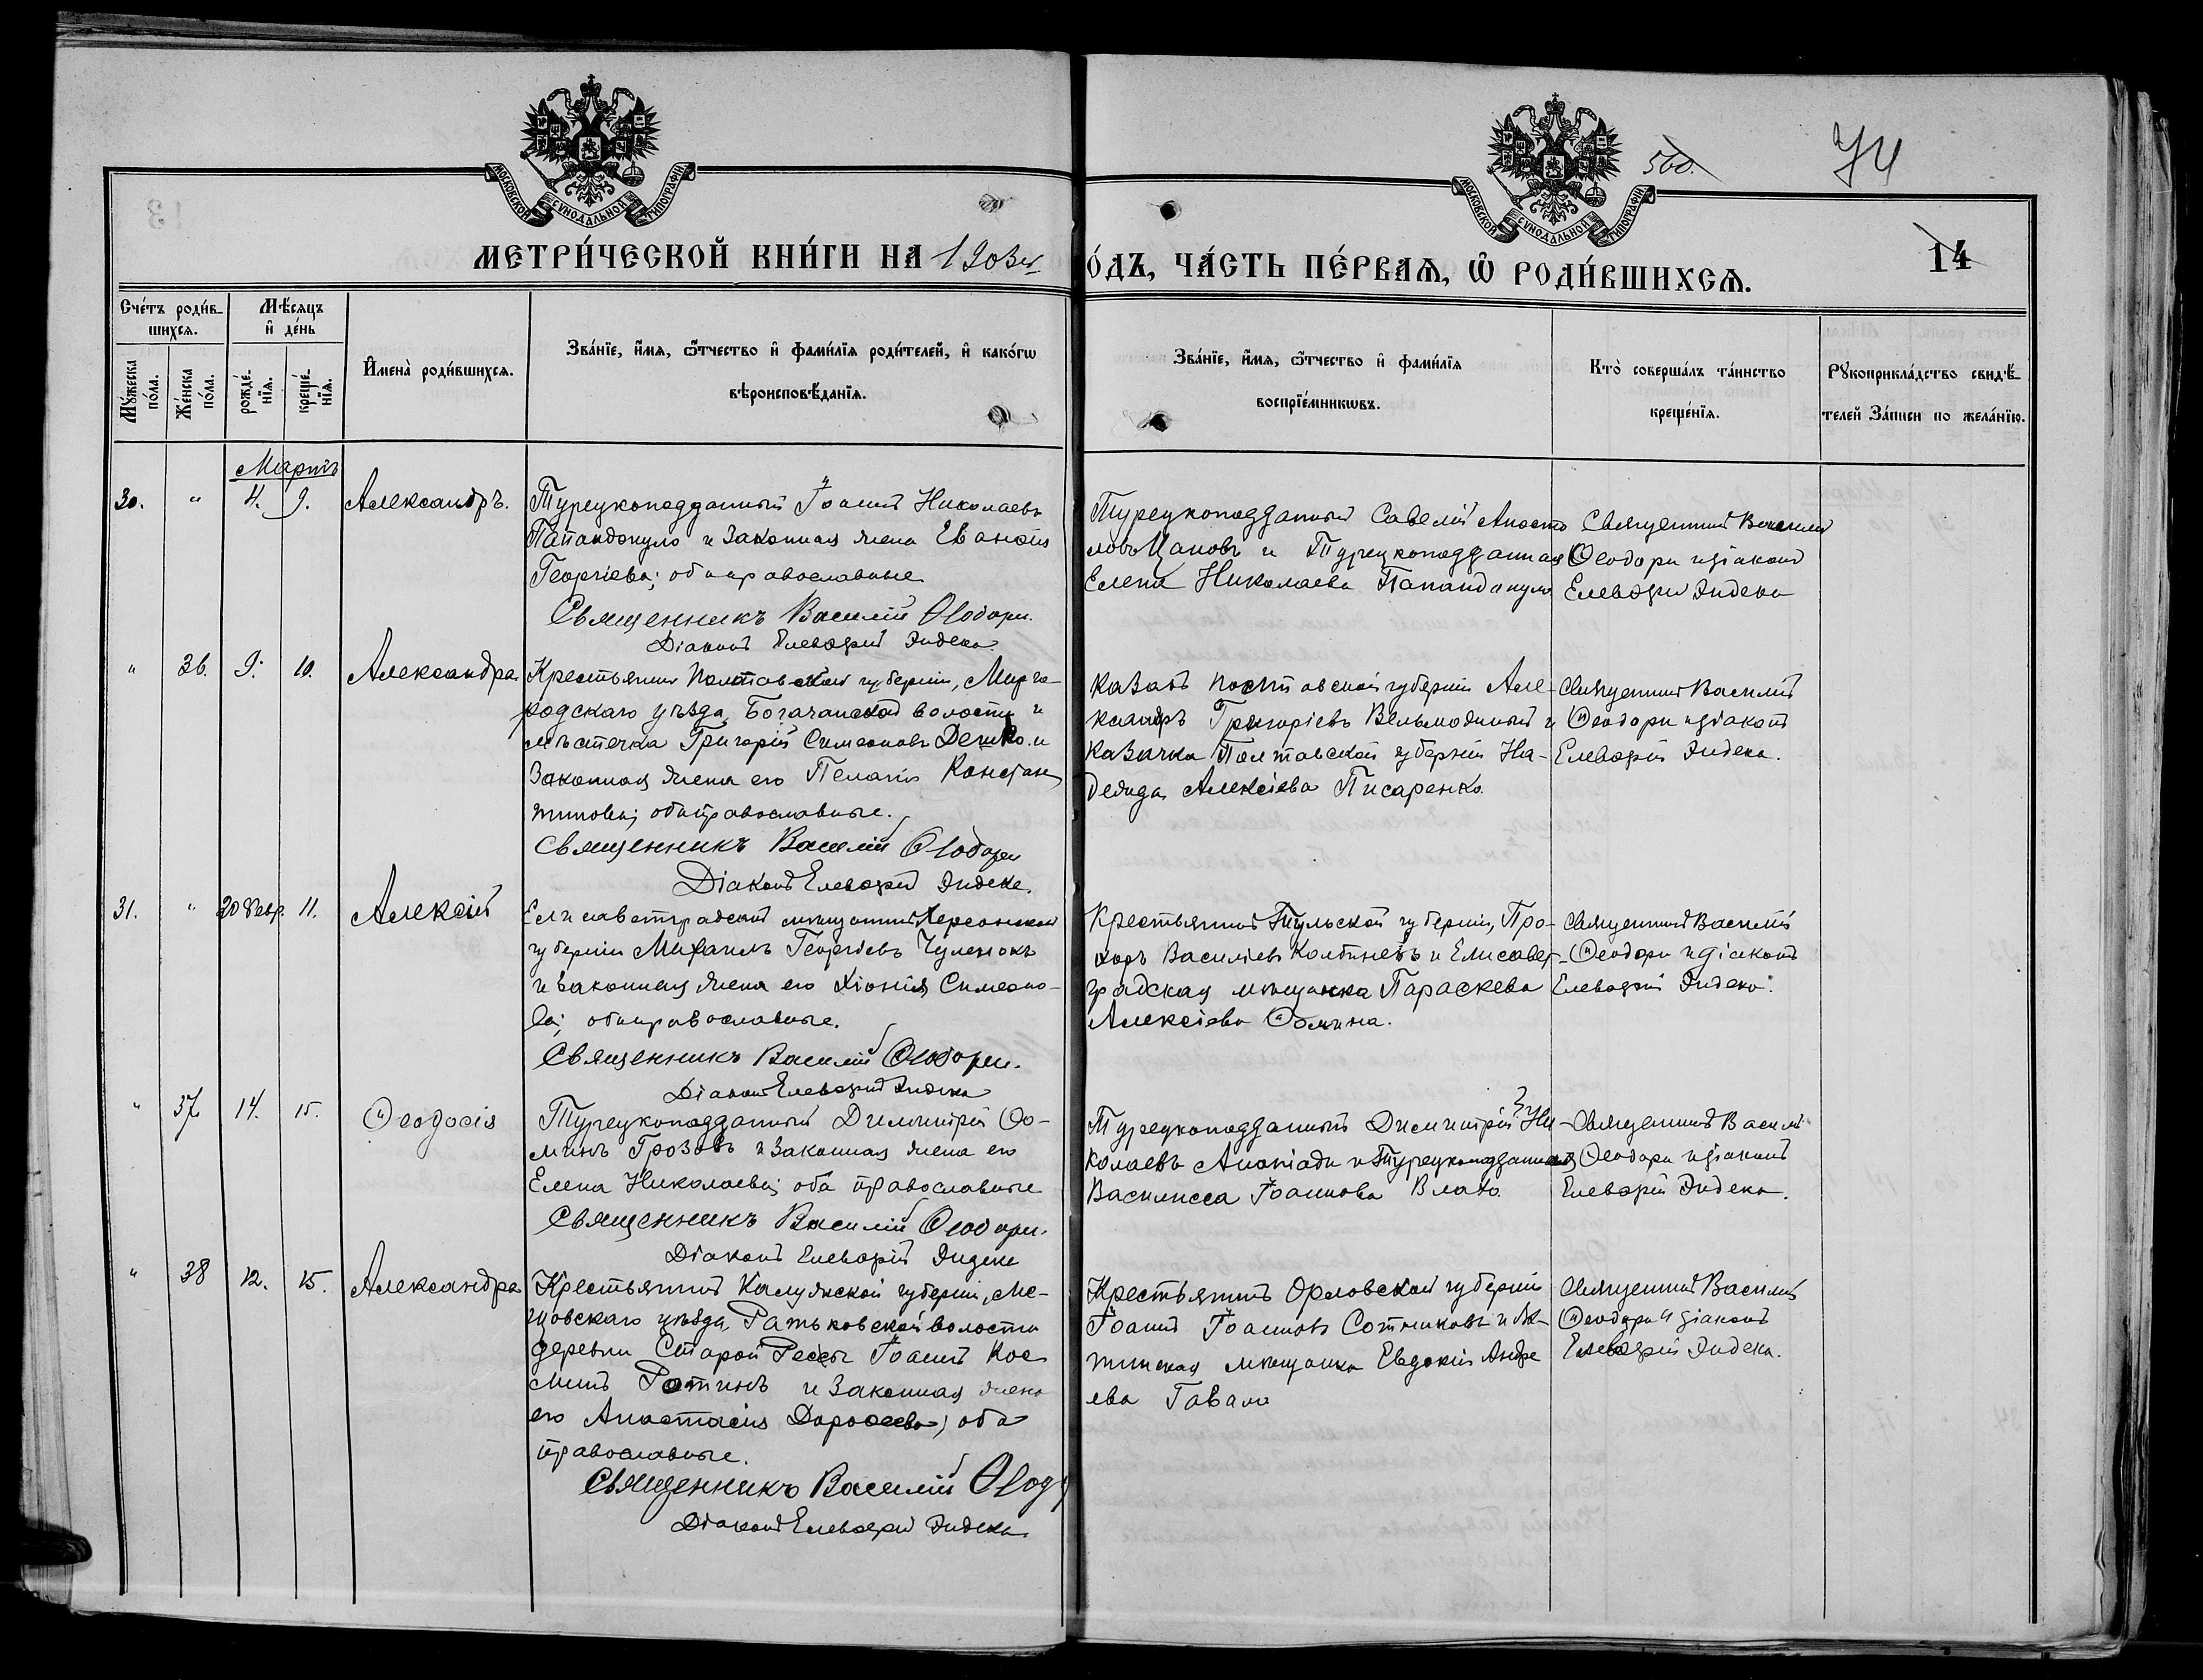 МОСКОВСКОЙ СѴНОДАЛЬНОЙ ТИПОГРАФІИ
МОСКОВСКОЙ СѴНОДАЛЬНОЙ ТИПОГРАФІИ
560.
74
14
МЕТРИ́ЧЕСКОЙ КНИ́ГИ НА 1903й
О́ДЪ, ЧА́СТЬ ПЕ́РВАѦ, Ѽ РОДИ́ВШИХСѦ.
Сче́тъ роди́в-
шихсѧ.
Мѣ́сѧцъ
и҆ де́нь
Мꙋ́жеска по́ла.
Же́нска по́ла.
рожде́-
нїѧ.
креще́-
нїѧ.
И҆мена̀ роди́вшихсѧ.
Зва́нїе, и҆́мѧ, ѻ҆́тчество и҆ фами́лїѧ роди́телей, и҆ како́гѡ
вѣроисповѣ́данїѧ.
Зва́нїе, и҆́мѧ, ѻ҆́тчество и҆ фами́лїѧ
воспрїе́мникѡвъ.
Кто̀ соверша́лъ та́инство
креще́нїѧ.
Рꙋкоприкла́дство свидѣ́-
телей за́писи по жела́нїю.
Мартъ
30. " 4. 9. Александръ.
Турецкоподданный Іоаннъ Николаевъ
Папандопуло и законная жена
Георгіева; оба православные
Священникъ Василій Ѳеодори.
Діаконъ Елевѳерій Індеко.
Турецкоподданный Савелій Апосто
ловъ Цаповъ и Турецкоподданная
Елена Николаева Папандопуло
Священникъ Василій
Ѳеодори и діаконъ
Елевѳерій Індеко
" 36. 9. 10. Александра
Крестьянинъ Полтавской губерніи, Мирго-
родскаго уѣзда, Богачанской волости и
мѣстечка Григорій Симеоновъ Дешко и
законная жена его Пелагія Констан
тинова; оба православные.
Священникъ Василій Ѳеодори
Діаконъ Елевѳерій Індеко.
Казакъ Полтавской губерніи Але-
ксандръ Григоріевъ Вельможный и
Казачка Полтавской губерніи На-
дежда Алексіева Писаренко.
Священникъ Василій
Ѳеодори и діаконъ
Елевѳерій Індеко.
31. " 20 Февр. 11. Алексій
Елисаветградскій мѣщанинъ Херсонской
губерніи Михаилъ Георгіевъ Чуленокъ
и законная жена его Хіонія Симеоно-
ва; оба православные.
Священникъ Василій Ѳеодори.
Діаконъ Елевѳерій Індеко
Крестьянинъ Тульской губерніи, Про-
хоръ Василіевъ Колтиневъ и Елисавет-
градская мѣщанка Параскева
Алексіева Ѳомина.
Священникъ Василій
Ѳеодори и діаконъ
Елевѳерій Індеко.
" 37. 14. 15. Ѳеодосія
Турецкоподданный Димитрій Ѳо-
минъ Грозовъ и законная жена его
Елена Николаева; оба православные
Священникъ Василій Ѳеодори.
Діаконъ Елевѳерій Індеко
Турецкоподданный Димитрій Ни-
колаевъ Ананіади и Турецкоподданная
Василисса Іоаннова Влахо.
Священникъ Василій
Ѳеодори и діаконъ
Елевѳерій Індеко.
" 38 12. 15. Александра
Крестьянинъ Калужской губерніи, Ме-
щовскаго уѣзда, Ратьковской волости
деревни Старой Рессы Іоаннъ Кос
минъ Ротинъ и законная жена
его Анастасія Дороѳеева; оба
православные.
Священникъ Василій Ѳеод
Діаконъ Елевѳерій Індеко
Крестьянинъ Орловской губерніи
Іоаннъ Іоанновъ Сотниковъ и
мѣщанка Евдокія Андре
ева Гавало
Священникъ Василій
Ѳеодори и діаконъ
Елевѳерій Індеко.